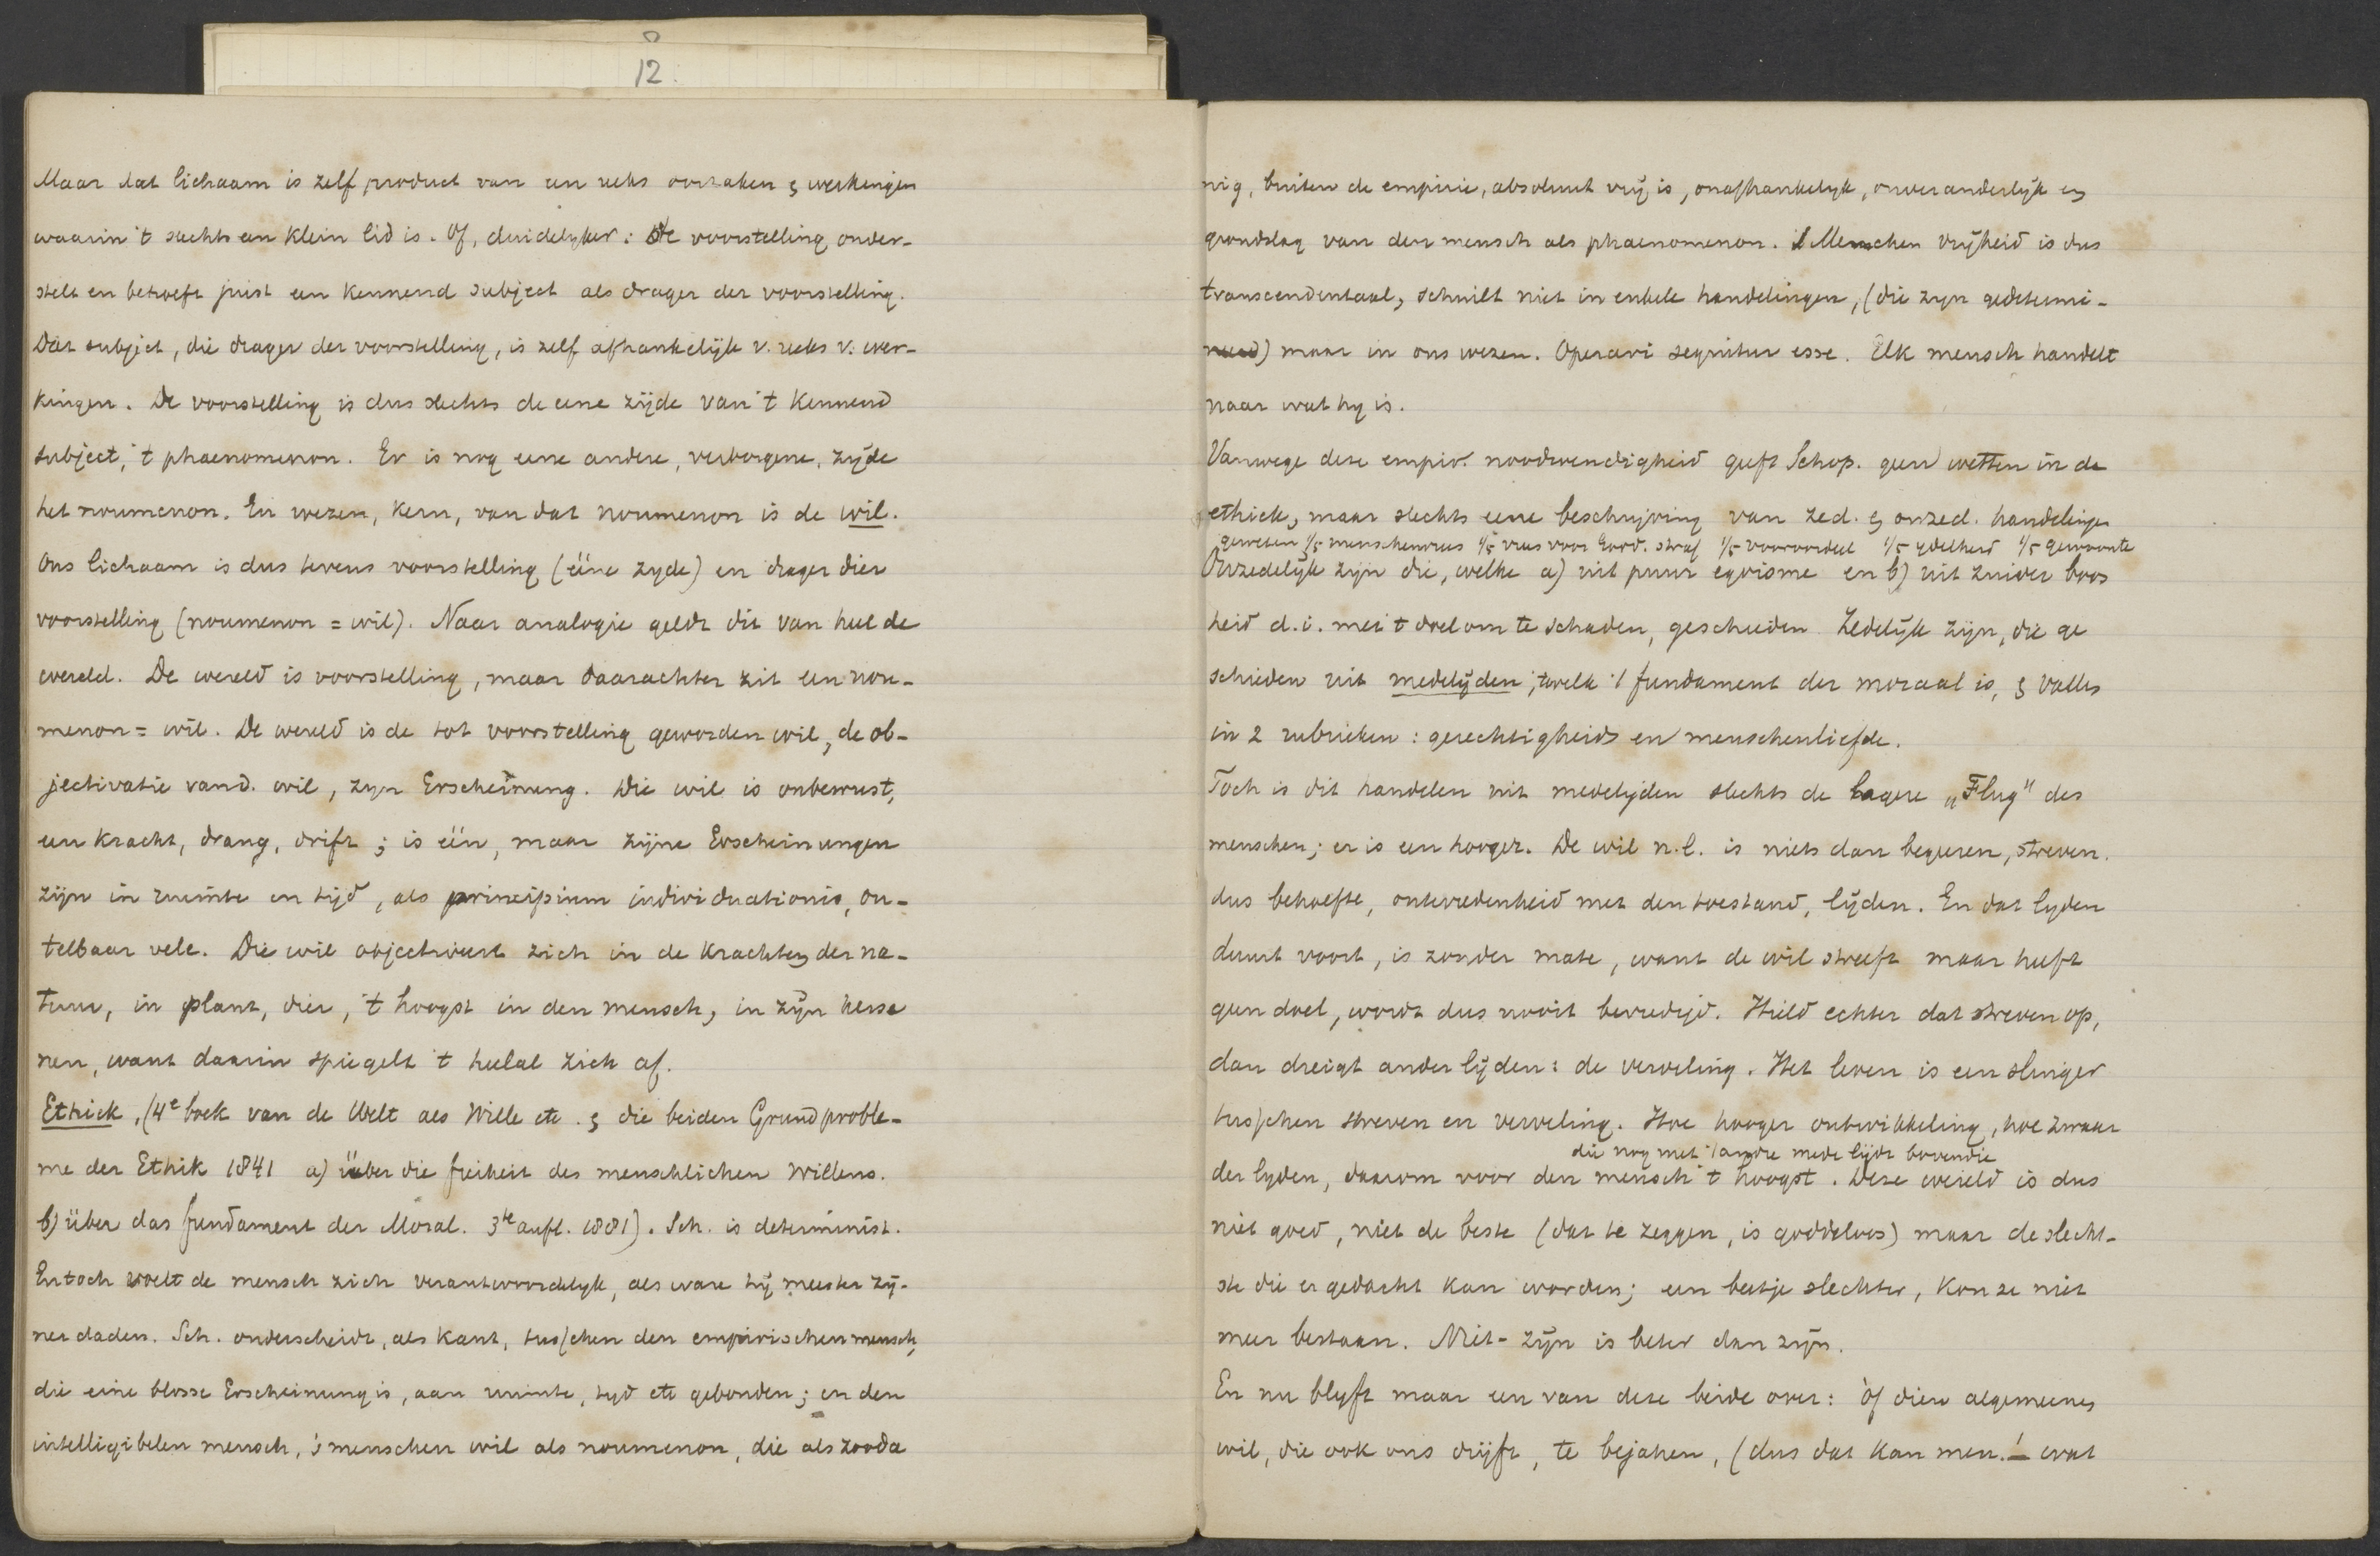 12.
Maar dat lichaam is zelf product van een reeks oorzaken & werkingen
waarin 't slechts een klein lid is. Of, duidelyker: de voorstelling onder-
stelt en behoeft juist een kennend subject als drager der voorstelling.
Dat subject, die drager der voorstelling, is zelf afhankelijk v. reeks v. wer-
kingen. De voorstelling is dus slechts de eene zijde van 't kennend
subject, 't phaenomenon. Er is nog eene andere, verborgene, zijde
het noumenon. En wezen, kern, van dat noumenon is de wil.
Ons lichaam is dus tevens voorstelling (ééne zyde) en drager dier
voorstelling (noumenon = wil). Naar analogie geldt dit van heel de
wereld. De wereld is voorstelling, maar daarachter zit een nou-
menon = wil. De wereld is de tot voorstelling geworden wil, de ob-
jectivatie vand. wil, zyn Erscheinung. Die wil is onbewust,
een kracht, drang, drift; is één, maar zijne Erscheinungen
zijn in ruimte en tijd, als principium individuationis, on-
telbaar vele. Die wil objectiveert zich in de krachten der na-
tuur, in plant, dier, 't hoogst in den mensch, in zijn herse
nen, want daarin spiegelt 't heelal zich af.
Ethiek, (4e boek van de Welt als Wille etc. & die beiden Grundproble-
me der Ethik 1841 a) über die freiheit des menschlichen Willens.
b) über das fundament der Moral. 3te aufl. 1881). Sch. is determinist.
En toch voelt de mensch zich verantwoordelyk, als ware hij meester zij-
ner daden. Sch. onderscheidt, als Kant, tusschen den empirischen mensch,
die eine blosse Erscheinung is, aan ruimte, tyd etc gebonden; en den
intelligibelen mensch, 's menschen wil als noumenon, die als zooda
nig, buiten de empirie, absoluut vrij is, onafhankelyk, onveranderlijk en
grondslag van den mensch als phaenomenon. 's Menschen vrijheid is dus
transcendentaal, schuilt niet in enkele handelingen, (die zyn gedetermi-
neerd) maar in ons wezen. Operari sequitur esse. Elk mensch handelt
naar wat hy is.
Vanwege deze empir. noodwendigheid geeft Schop. geen wetten in de
ethiek, maar slechts eene beschrijving van zed. & onzed. handelingen
geweten 1/5 menschenvrees 1/5 vrees voor Godd. straf 1/5 vooroordeel 1/5 ydelheid 1/5 gewoonte
Onzedelijk zijn die, welke a) uit puur egoisme en b) uit zuiver boos
heid d.i. met 't doel om te schaden, geschieden. Zedelijk zijn, die ge
schieden uit medelijden, 'twelk 't fundament der moraal is, & vallen
in 2 rubrieken: gerechtigheid en menschenliefde.
Toch is dit handelen uit medelijden slechts de lagere „Flug" des
menschen; er is een hooger. De wil n.l. is niets dan begeeren, streven.
dus behoefte, ontevredenheid met den toestand, lijden. En dat lyden
duurt voort, is zonder mate, want de wil streeft maar heeft
geen doel, wordt dus nooit bevredigd. Hield echter dat streven op,
dan dreigt ander lijden: de verveling. Het leven is een slinger
tusschen streven en verveling. Hoe hooger ontwikkeling, hoe zwaar
die nog met 't andre mede lijdt bovendie
der lyden, daarom voor den mensch 't hoogst. Deze wereld is dus
niet goed, niet de beste (dat te zeggen, is goddeloos) maar de slecht-
ste die er gedacht kan worden; een beetje slechter, kon ze niet
meer bestaan. Niet-zijn is beter dan zijn.
En nu blyft maar een van deze beide over: òf dien algemeenen
wil, die ook ons drijft, te bejahen, (dus dat kan men! — wat